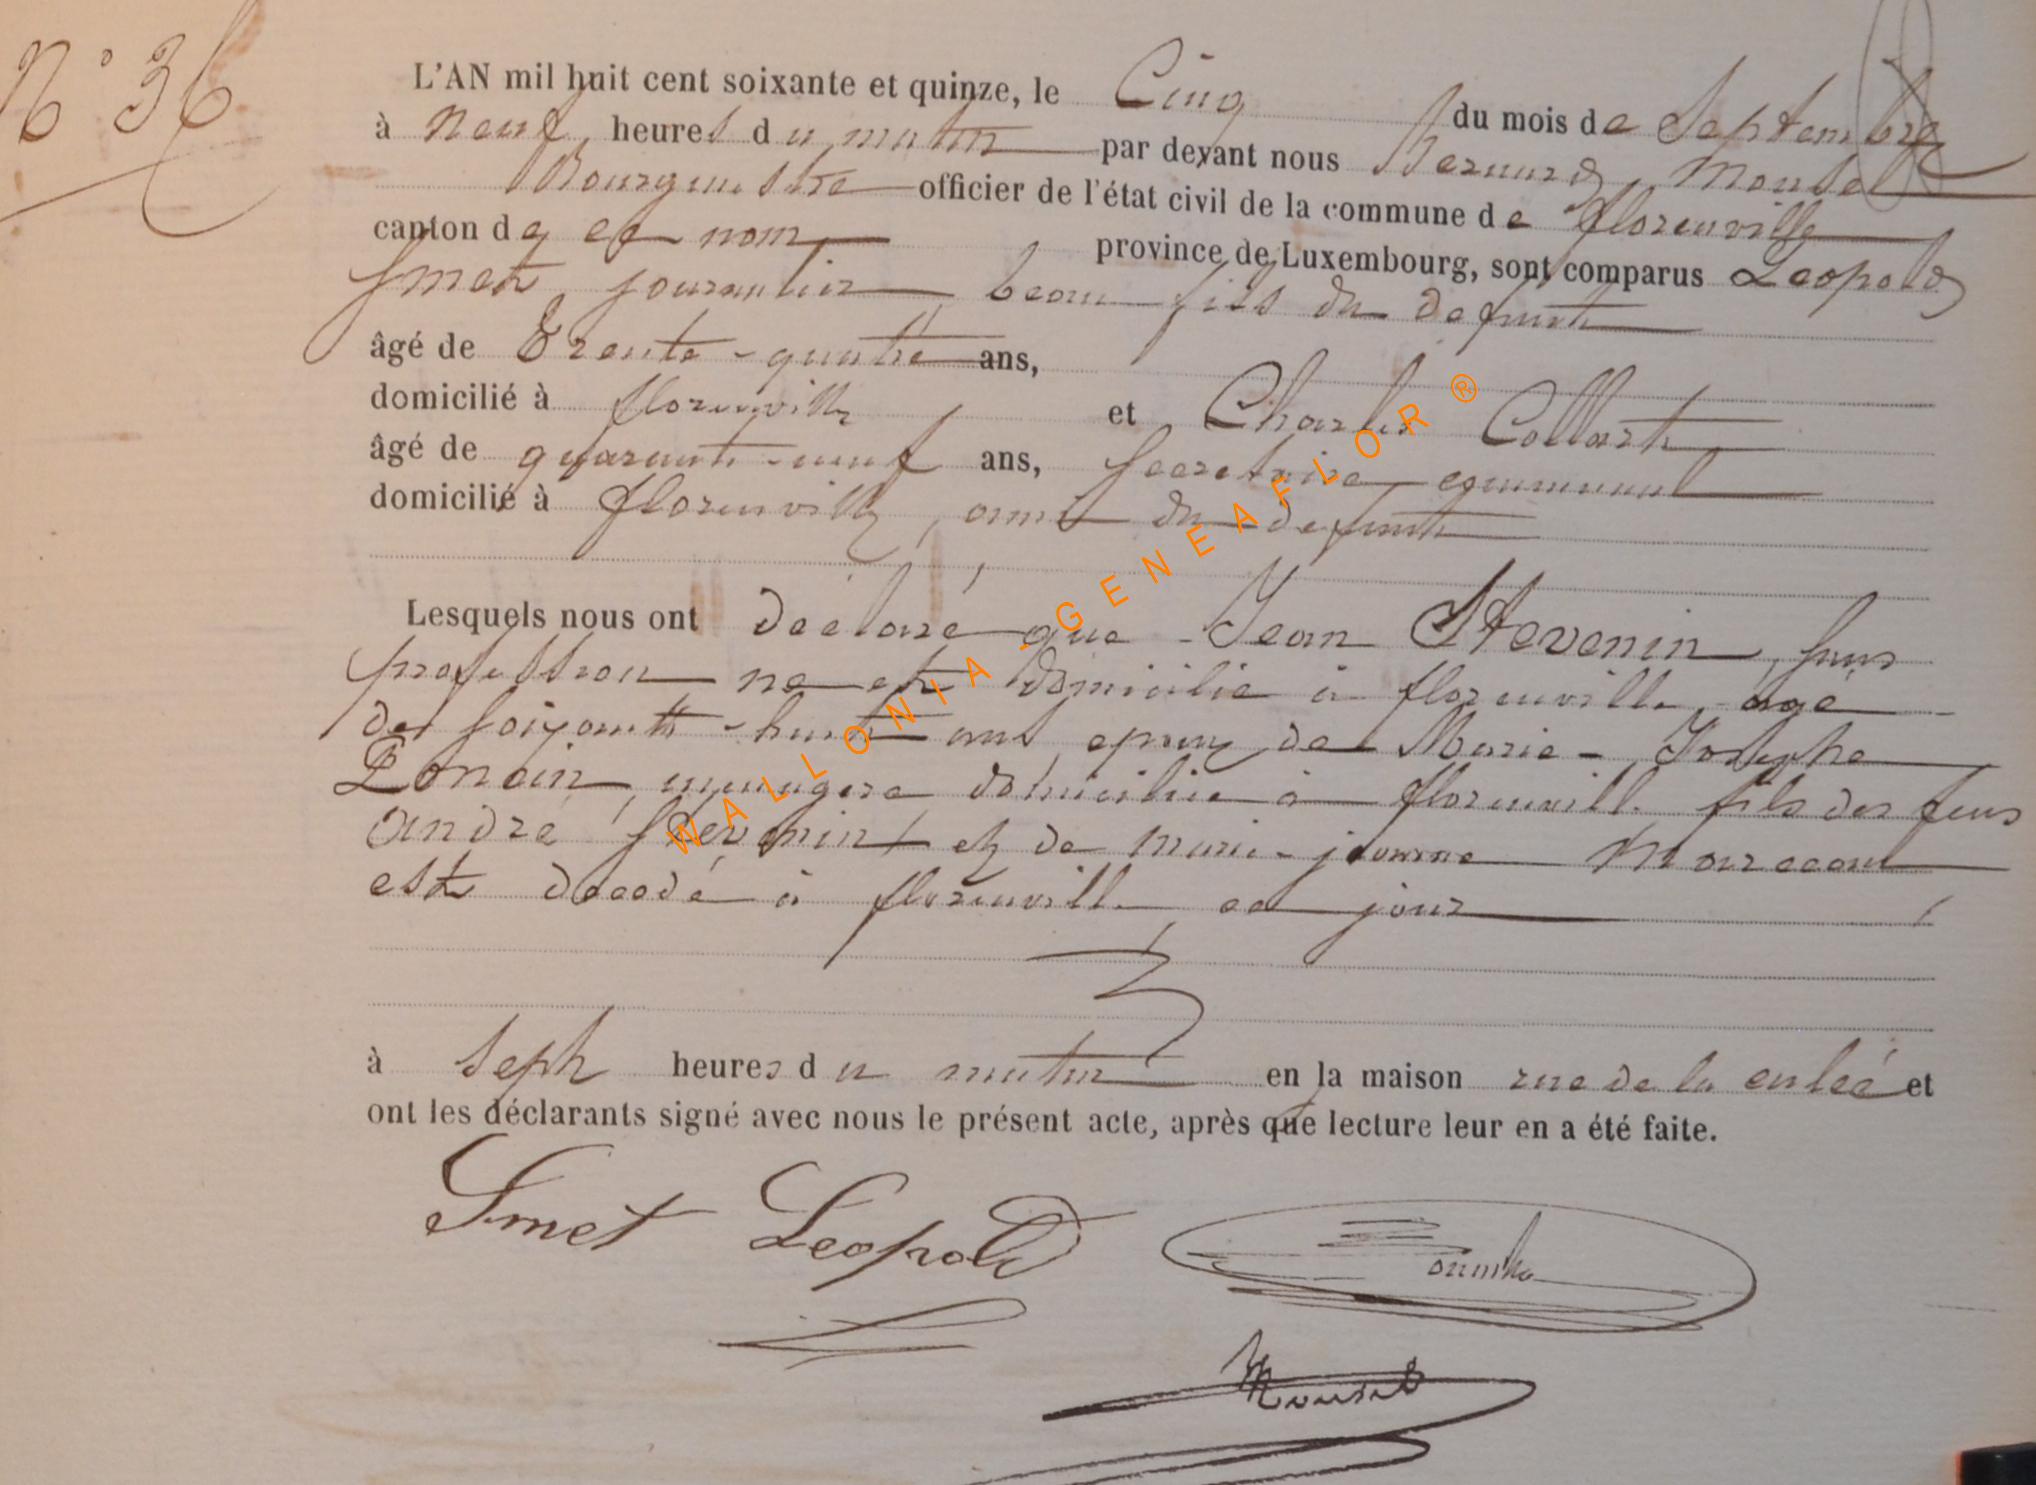 N° 36
L'AN mil huit cent soixante et quinze, le Cinq du mois de Septembre
à neuf heures du matin par devant nous Bernard Mousel
Bourgmestre officier de l'état civil de la commune de florenville
canton de ce nom province de Luxembourg, sont comparus Leopold
Smet journalier beau fils du defunt
âgé de Trente-quatre ans,
domicilié à florenville et Charles Collart
âgé de quarante-neuf ans, Secretaire communal
domicilié à florenville, ami du defunt
Lesquels nous ont declaré que Jean Stevenin, sans
profession né et domicilié à florenville, agé
de soixante-huit ans, epoux de Marie-Josephe
menagere domiciliée à florenville fils des feus
andré Stevenin et de marie-jeanne Marceau
est decedé à florenville ce jour
à sept heures du matin en la maison rue de la culée et
ont les déclarants signé avec nous le présent acte, après que lecture leur en a été faite.
Smet Leopold
Mousel
WALLONIA-GENEAFLOR®